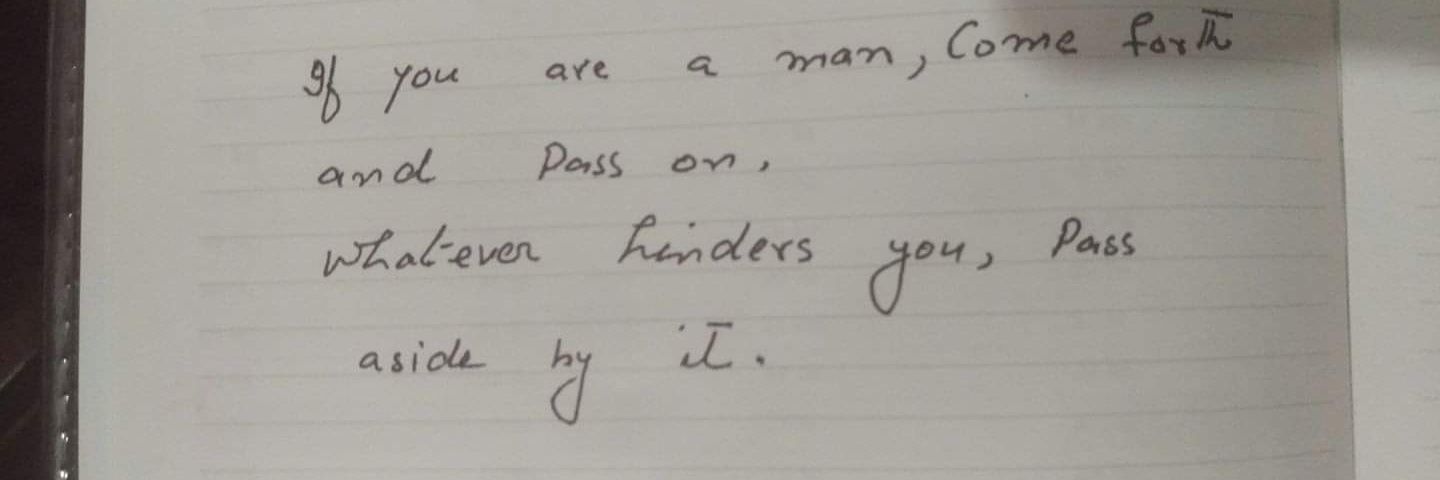 If you are a man, Come forth
and Pass on.
Whatever hinders you, Pass
aside by it.